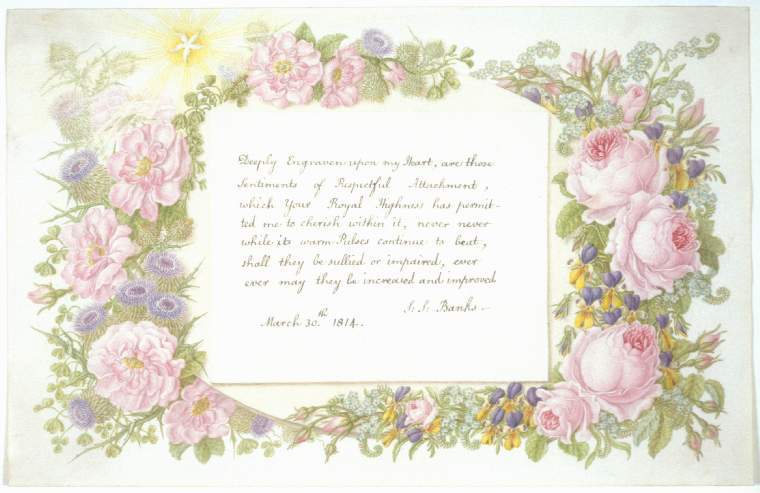 Deeply Engraven upon my Heart, are those
Sentiments of Respectful Attachment,
which Your Royal Highness has permit-
ted me to cherish within it, never never
while its warm Pulses continue to beat,
shall they be sullied or impaired, ever
ever may they be increased and improved
S. S. Banks.
March 30.th 1814.